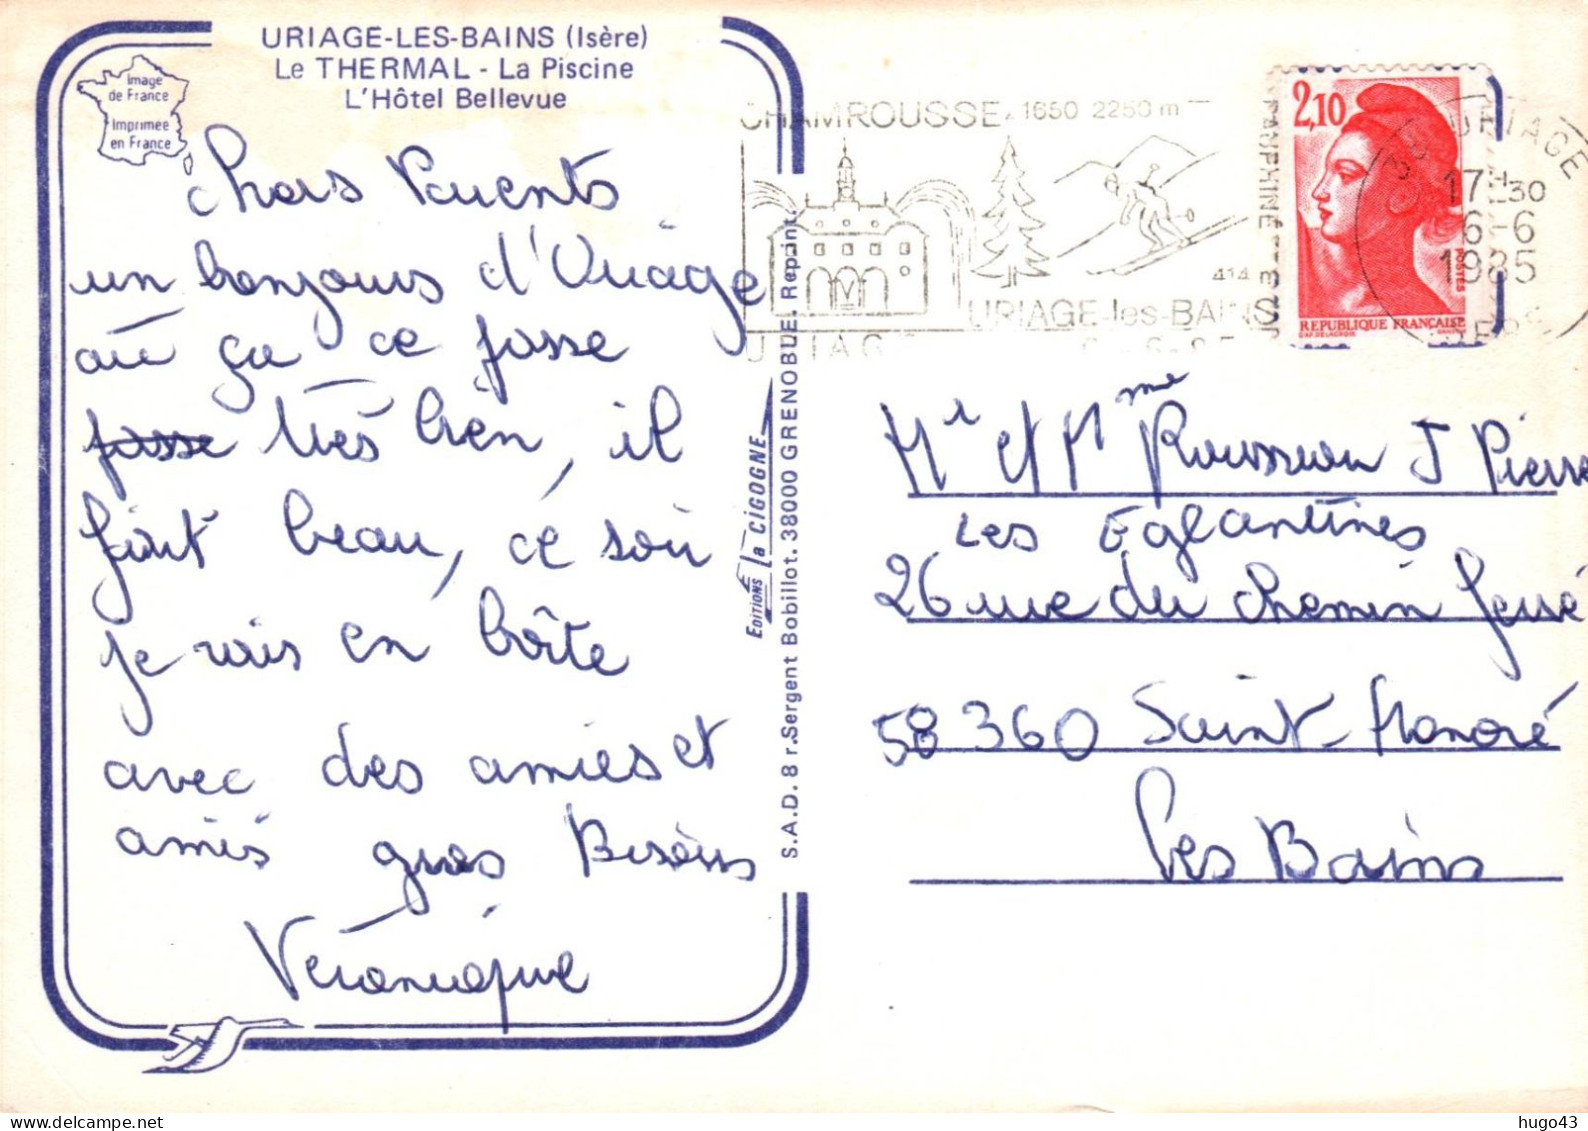 URIAGE-LES-BAINS (Isère)
Le THERMAL - La Piscine
L'Hôtel Bellevue
Image
de France
Imprimée
en France
chers Parents
un bonjours d'Uriage
où ça ce passe
passe très bien, il
fait beau, ce soir
je vais en boîte
avec des amies et
amis gros Bisous
Véronique
EDITIONS la CIGOGNE
S.A.D. 8 r. Sergent Bobillot. 38000 GRENOBLE. Reprint.
CHAMROUSSE 1650 2250 m
414
URIAGE-les-BAINS
2,10
POSTES
REPUBLIQUE FRANÇAISE
URIAGE
17H30
6-6
1985
ISERE
Mr et Mme Rousseau J Pierre
Les Eglantines
26 rue du chemin ferré
58360 Saint-Honoré
Les Bains
hugo43